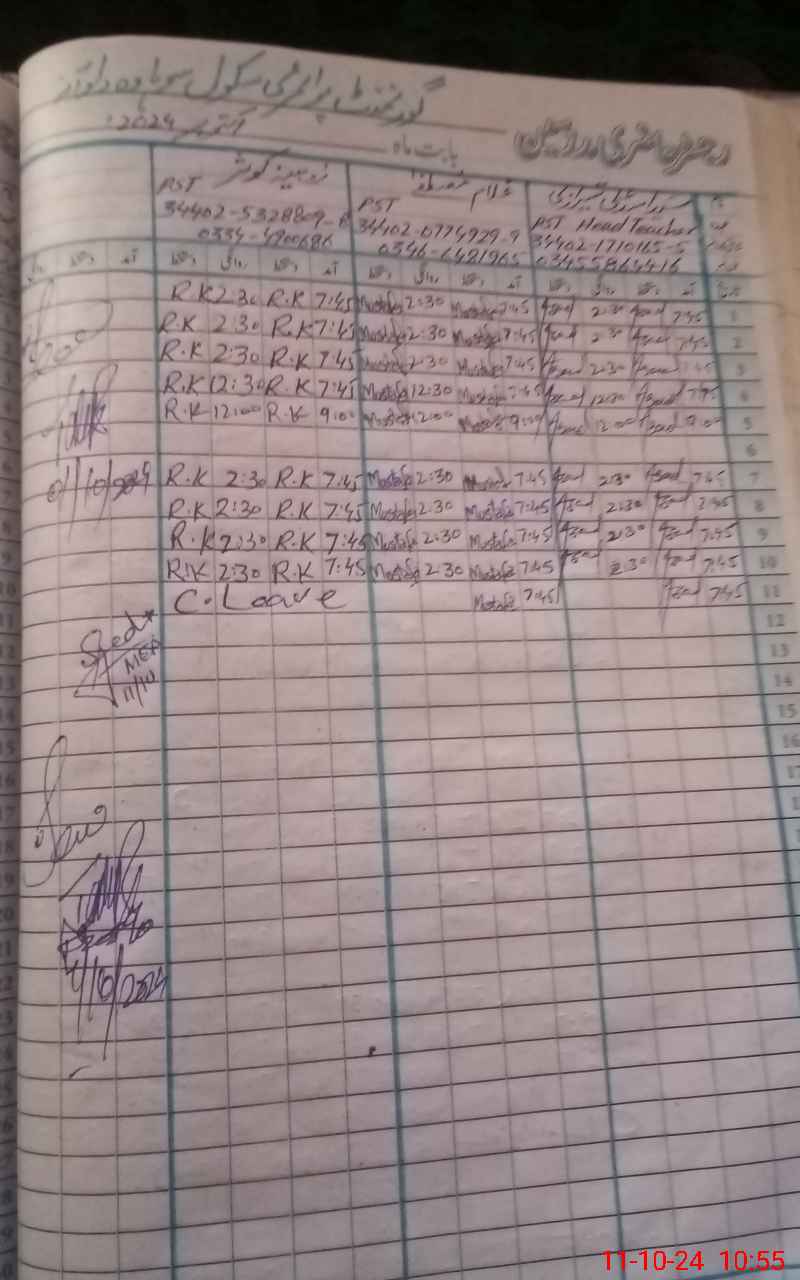 گورنمنٹ پرائمری سکول
رجسٹر حاضری مدرسین
بابت ماہ اکتوبر 2024
روبینہ کوثر
غلام مصطفیٰ
PST
34402-5328809-8
0334-4900686
PST
34402-0774929-9
0346-6421965
PST Head Teacher
34402-1710165-5
03455864416
R.K 2:30 R.K 7:45 Mustafa 2:30 Mustafa 7:45 Asad 2:30 Asad 7:45 1
R.K 2:30 R.K 7:45 Mustafa 2:30 Mustafa 7:45 Asad 2:30 Asad 7:45 2
R.K 2:30 R.K 7:45 Mustafa 2:30 Mustafa 7:45 Asad 2:30 Asad 7:45 3
R.K 12:30 R.K 7:45 Mustafa 12:30 Mustafa 7:45 Asad 12:30 Asad 7:45 4
R.K 12:00 R.K 9:00 Mustafa 12:00 Mustafa 9:00 Asad 12:00 Asad 9:00 5
6
R.K 2:30 R.K 7:45 Mustafa 2:30 Mustafa 7:45 Asad 2:30 Asad 7:45 7
R.K 2:30 R.K 7:45 Mustafa 2:30 Mustafa 7:45 Asad 2:30 Asad 7:45 8
R.K 2:30 R.K 7:45 Mustafa 2:30 Mustafa 7:45 Asad 2:30 Asad 7:45 9
R.K 2:30 R.K 7:45 Mustafa 2:30 Mustafa 7:45 Asad 2:30 Asad 7:45 10
C. Leave Mustafa 7:45 Asad 7:45 11
12
13
14
15
16
17
01/10/2024
MEA
11/10
4/10/2024
11-10-24 10:55